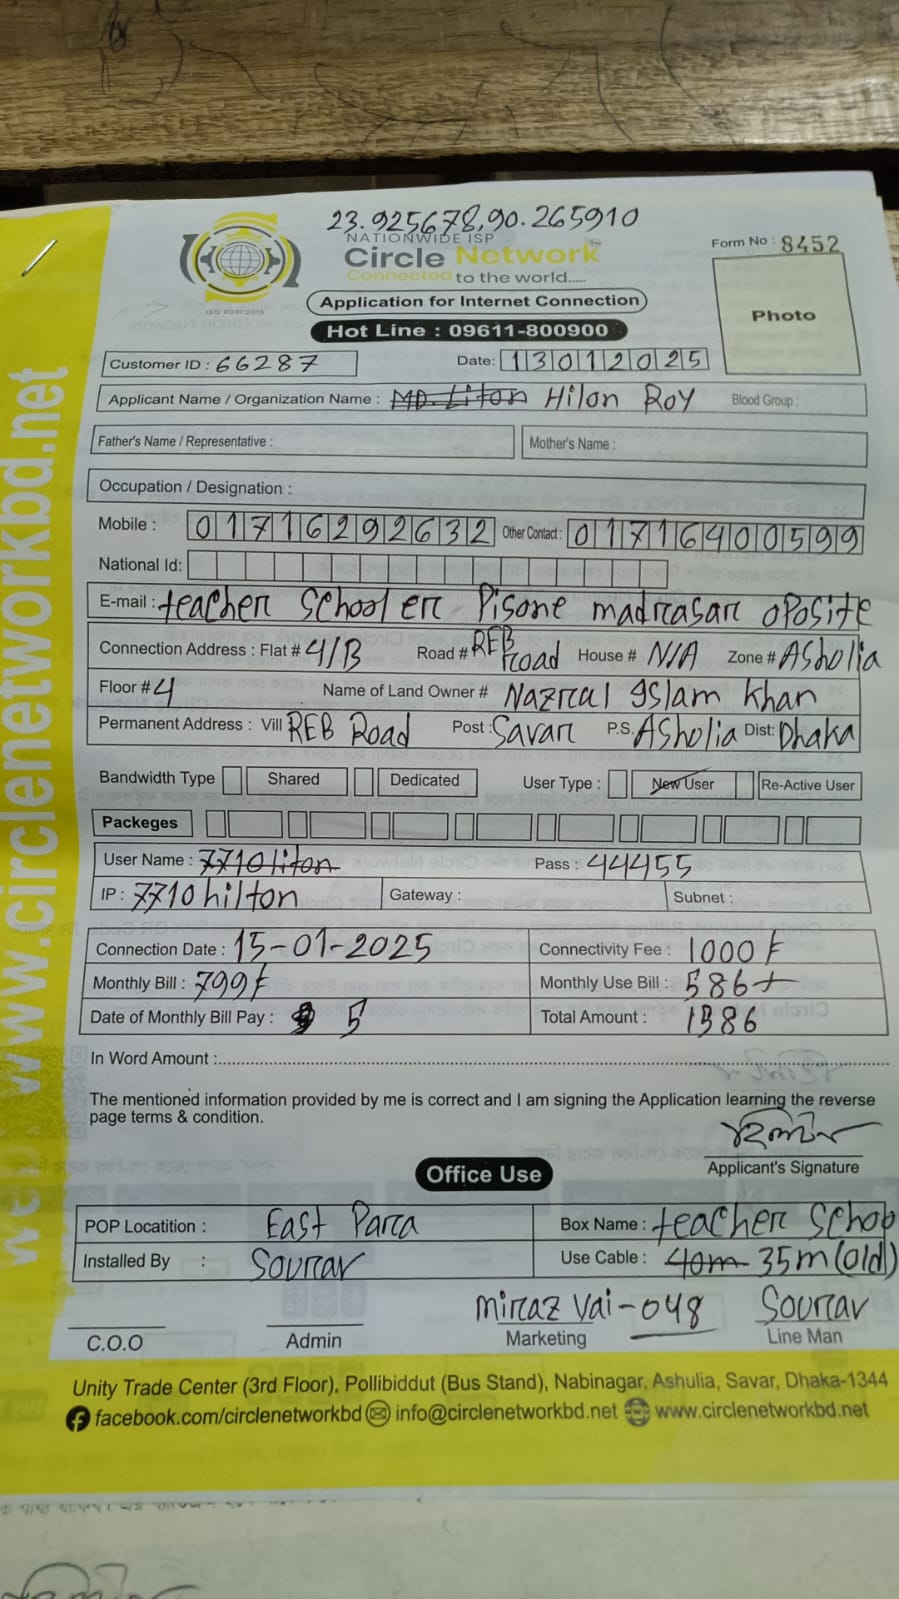 23.925678,90.265910
NATIONWIDE ISP
Circle Network™
Connected to the world.....
ISO 9001:2015
Form No : 8452
Application for Internet Connection
Hot Line : 09611-800900
Photo
Customer ID : 66287 Date: 13012025
Applicant Name / Organization Name : MD. Liton Hilon Roy Blood Group :
Father's Name / Representative : Mother's Name :
Occupation / Designation :
Mobile : 01716292632 Other Contact : 01716400599
National Id:
E-mail : teacher School er Pisone madrasar oposite
Connection Address : Flat # 4/B Road # REB Road House # N/A Zone # Asholia
Floor # 4 Name of Land Owner # Nazrul Islam Khan
Permanent Address : Vill REB Road Post : Savar P.S. Asholia Dist: Dhaka
Bandwidth Type Shared Dedicated User Type : New User Re-Active User
Packeges
User Name : 7710liton Pass : 44455
IP : 7710hilton Gateway : Subnet :
Connection Date : 15-01-2025 Connectivity Fee : 1000 ৳
Monthly Bill : 799৳ Monthly Use Bill : 586৳
Date of Monthly Bill Pay : 5 Total Amount : 1386
In Word Amount :
The mentioned information provided by me is correct and I am signing the Application learning the reverse
page terms & condition.
Applicant's Signature
Office Use
POP Locatition : East Para Box Name : teacher School
Installed By : Sourav Use Cable : 40m 35m (old)
miraz vai-048 Sourav
C.O.O Admin Marketing Line Man
Unity Trade Center (3rd Floor), Pollibiddut (Bus Stand), Nabinagar, Ashulia, Savar, Dhaka-1344
facebook.com/circlenetworkbd info@circlenetworkbd.net www.circlenetworkbd.net
www.circlenetworkbd.net